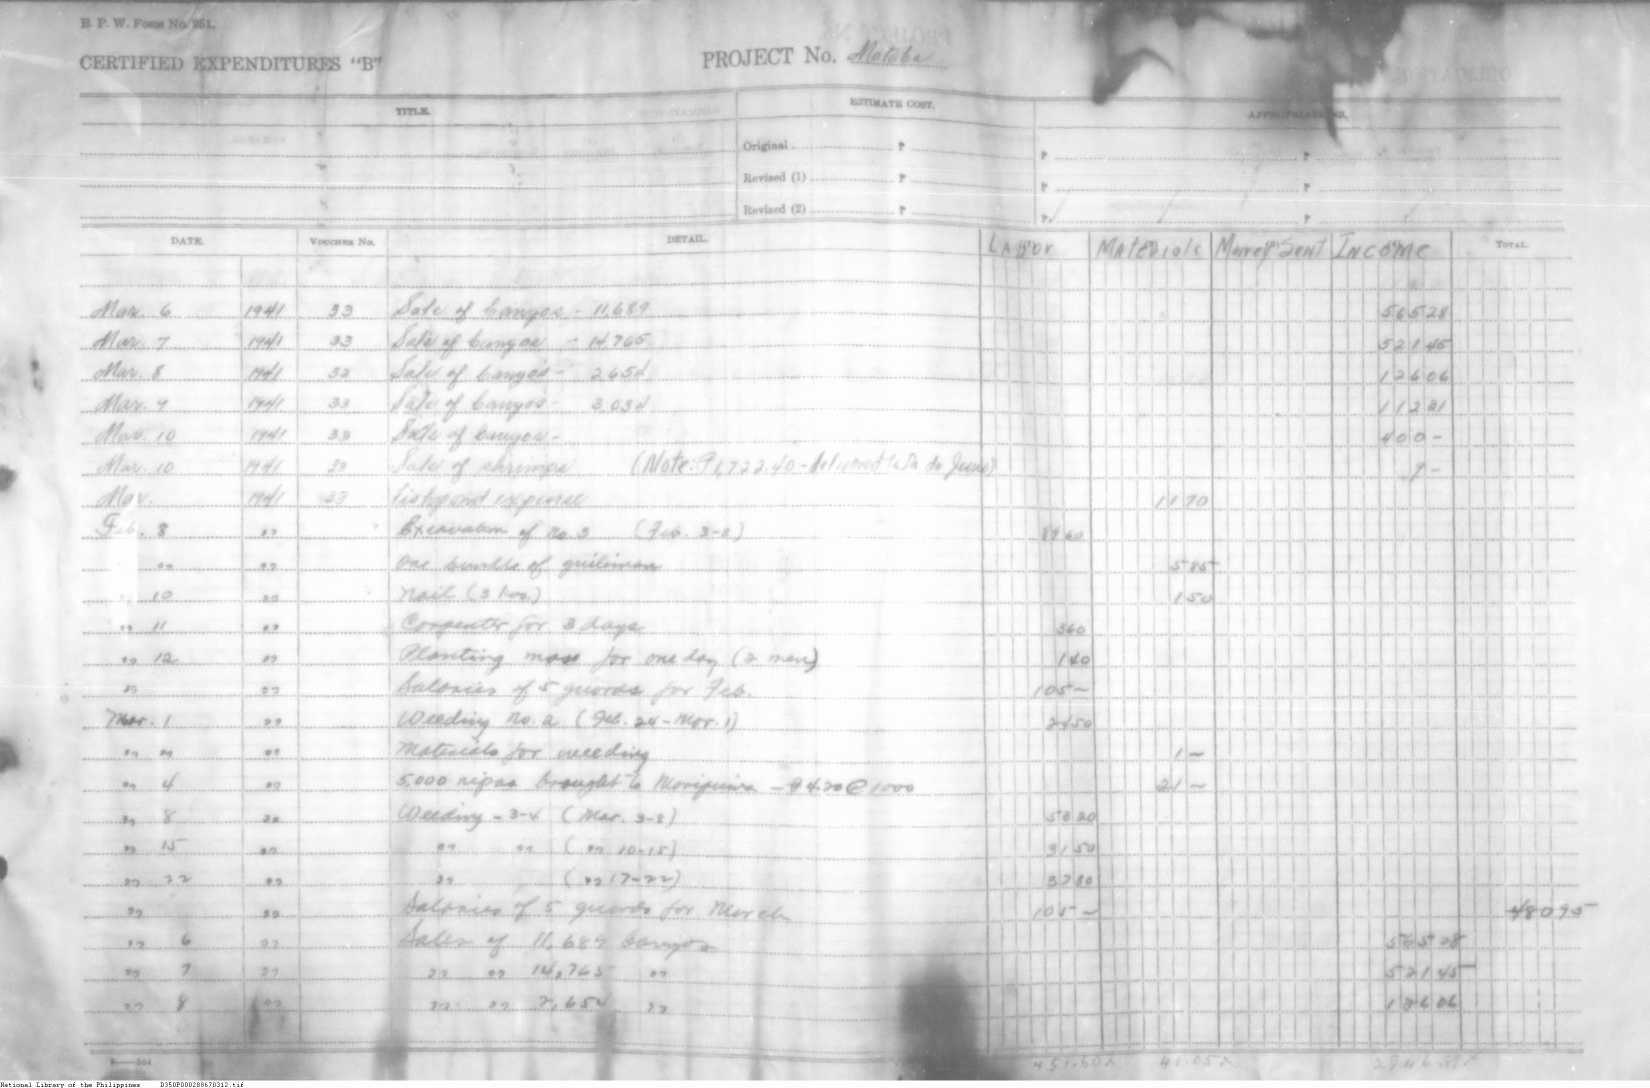 B. P. W. Form No. 251.
CERTIFIED EXPENDITURES "B"
PROJECT No. Matoba
TITLE.
ESTIMATE COST.
Original P
Revised (1) P
Revised (2) P
P P
P P
P P
DATE. VOUCHER No. DETAIL. LABOR MATERIALS Money Sent INCOME TOTAL
Mar. 6 1941 33 Sale of bangos - 11,689 565 28
Mar. 7 1941 33 Sale of bangos - 14,765 521 45
Mar. 8 1941 33 Sale of bangos - 2654 126 06
Mar. 9 1941 33 Sale of bangos - 3,034 112 21
Mar. 10 1941 33 Sale of bangos - 400 -
Mar. 10 1941 33 Sale of shrimps (Note: ₱1,722.40 - delivered 9 -
Mar. 1941 33 expense 11 70
Feb. 8 " Excavation of no. 3 (Feb. 3-8) 60
" " One bundle of 5 85
" 10 " Nail (3 kos.) 1 50
" 11 " Carpenter for 3 days 3 60
" 12 " Planting for one day (2 men) 1 40
" " Salaries of 5 guards for Feb. 105 -
Mar. 1 " Weeding no. 2 (Feb. 24 - Mar. 1) 50
" " " Materials for weeding 1 -
" 4 " 5,000 nipas brought to - ₱4.20 @ 1000 21 -
" 8 " Weeding - 3-4 (Mar. 3-8) 20
" 15 " " " ( " 10-15) 31 50
" 22 " " ( " 17-22) 37 80
" " Salaries of 5 guards for March 105 - 480 95
" 6 " Sales of 11,689 bangos 565 28
" 7 " " " 14,765 " 521 45
" 8 " " " 2,654 " 126 06
451.60 41.05
National Library of the Philippines D350P000288670312.tif